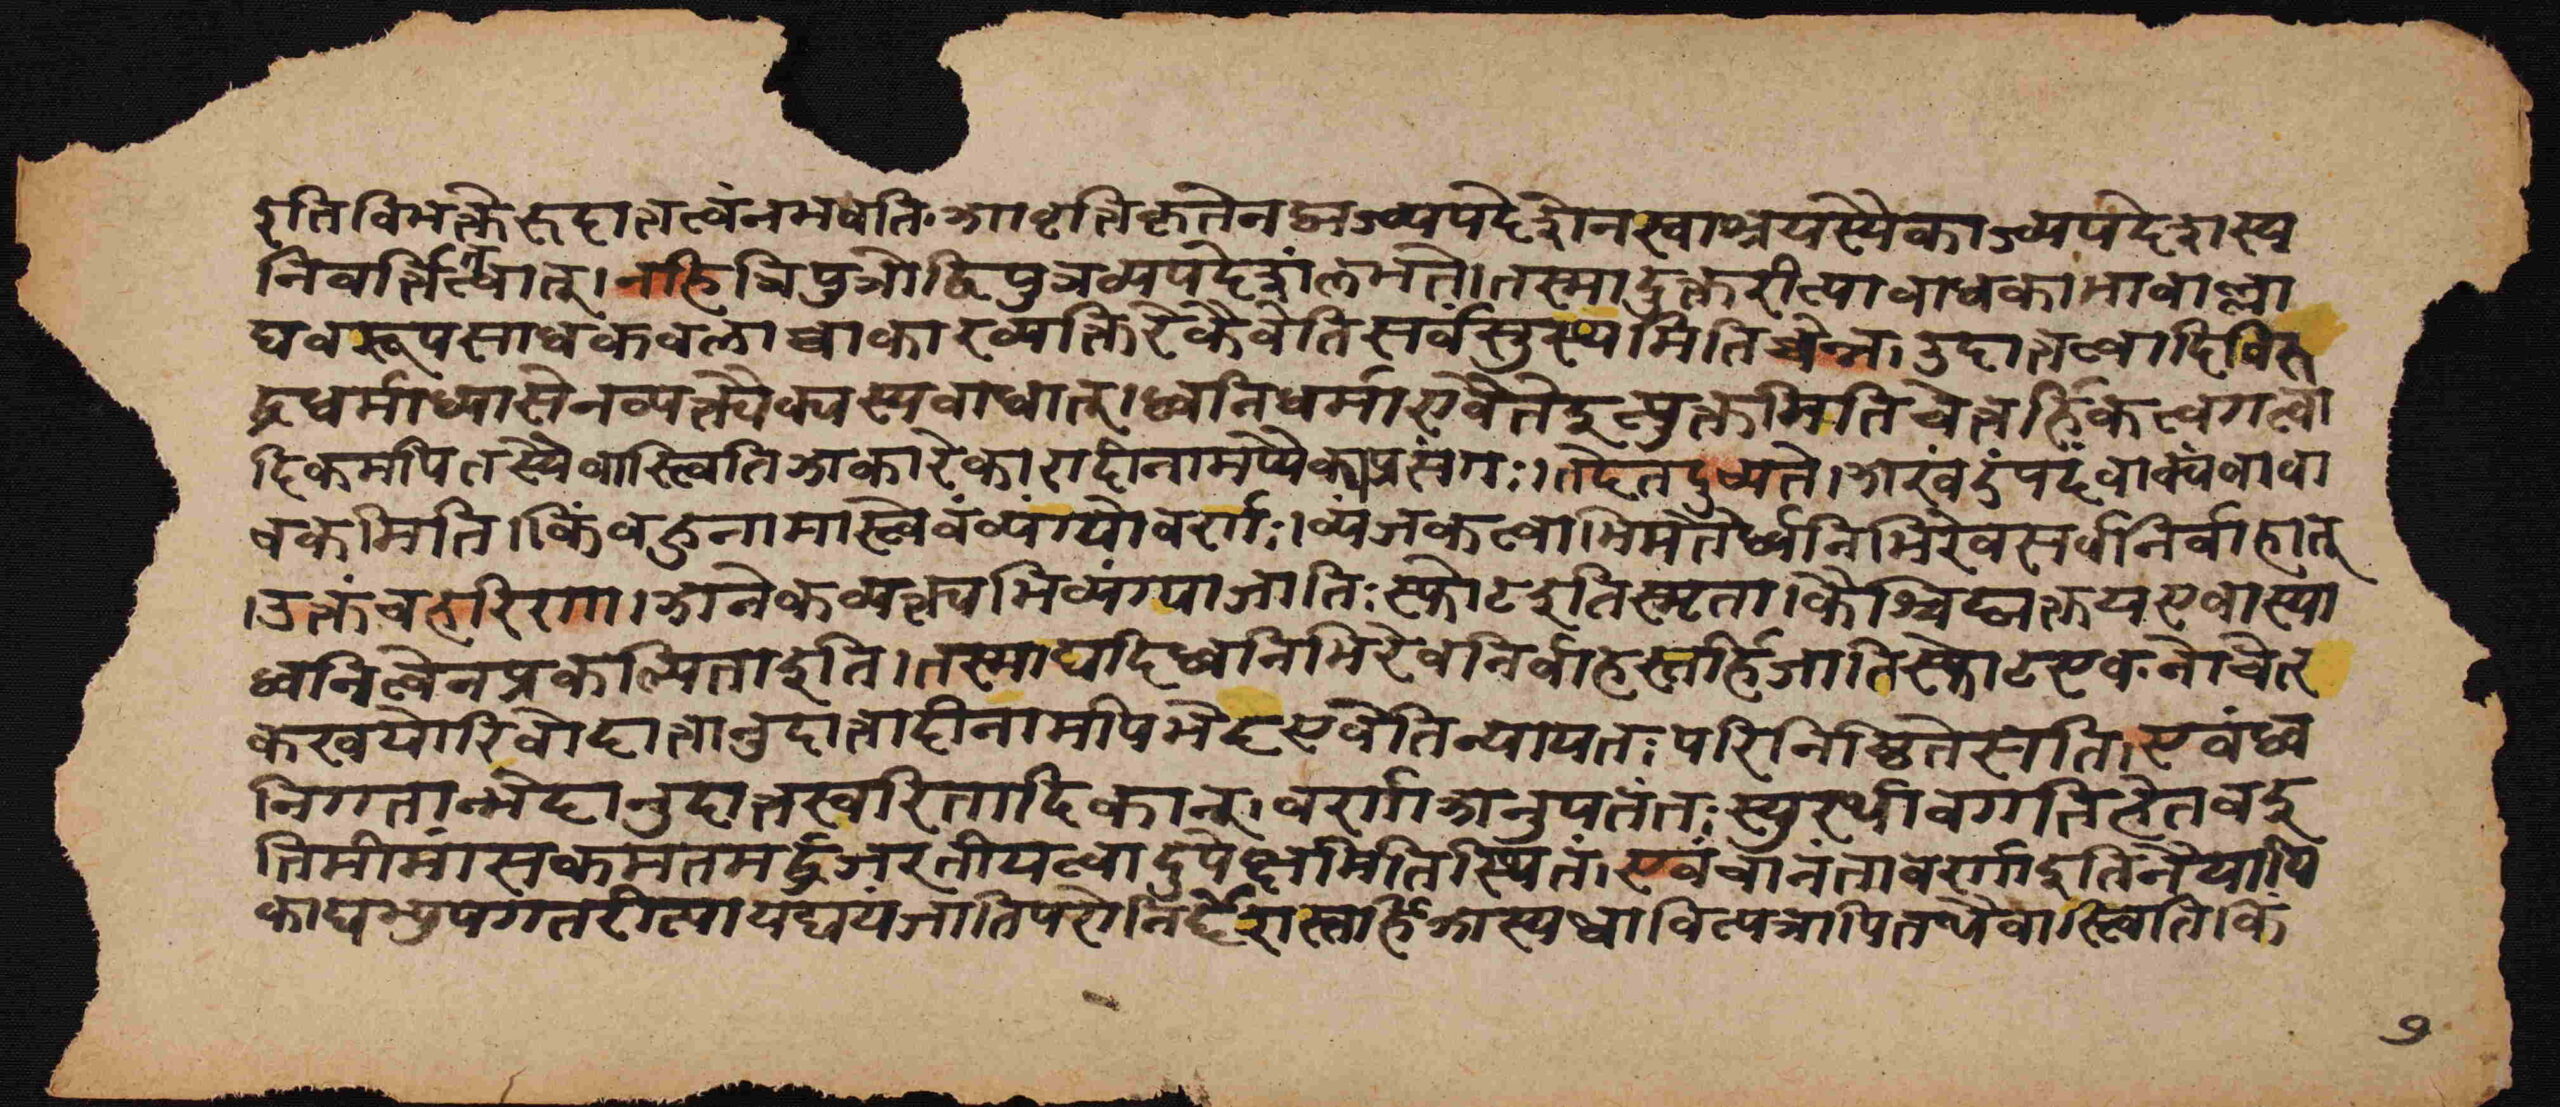 इति विभक्तेरुदात्तत्वं न भवति आवृत्तिकृतेन द्व्यज्व्यपदेशेन स्वाश्रयस्यैकाज्व्यपदेशस्य
निवर्त्तितत्वात् । नहि त्रिपुत्रो द्विपुत्रव्यपदेशं लभते । तस्मादुक्तरीत्या बाधकाभावाल्ला
घवरूपसाधकबलाच्चाकारव्यक्तिरेकैवेति सर्वं सुस्थमिति चेन्न । उदात्तत्वादिविरु
द्धधर्माध्यासेन व्यक्त्यैक्यस्य बाधात् । ध्वनिधर्मा एवैते इत्युक्तमिति चेत्तर्हि कत्वगत्वा
दिकमपि तस्यैवास्त्विति अकारेकारादीनामप्यैक्यप्रसंगः । तदेतदुच्यते । अखंडं पदं वाक्यं वा वा
चकमिति । किं बहुना मास्त्वेवं व्यंग्यो वर्णः । व्यंजकत्वाभिमतैर्ध्वनिभिरेव सर्वनिर्वाहात्
। उक्तं च हरिणा । अनेकव्यक्त्यभिव्यंग्या जातिः स्फोट इति स्मृता । कैश्चिद्व्यक्तय एवास्या
ध्वनित्वेन प्रकल्पिता इति । तस्माद्यदि ध्वनिभिरेव निर्वाहस्तर्हि जातिस्फोट एव नो चेत्
कखयोरिवोदात्तानुदात्तादीनामपि भेद एवेति न्यायतः परिनिष्ठिते सति । एवं ध्व
निगतान्भेदानुदात्तस्वरितादिकान् । वर्णा अनुपतंतः स्युरर्थावगतिहेतव इ
ति मीमांसकमतमर्द्धजरतीयत्वादुपेक्ष्यमिति स्थितं । एवं चानंता वर्णा इति नैयायि
काद्यभ्युपगतरीत्या यद्ययं जातिपरो निर्देशस्तर्हि अस्य च्वावित्यत्रापि तथैवास्त्विति । किं
७